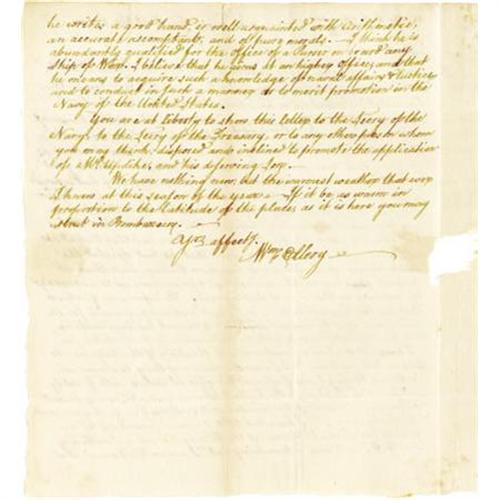 he writes a good hand, is well acquainted with Arithmetic,
an accurate accomptant, and of pure morals. I think he is
abundantly qualified for the office of a on board any
ship of War. I believe that he aims at an higher office, and that
he means to acquire such a knowledge of naval affairs & tactics
and to conduct in such a manner as to merit promotion in the
Navy of the United States.
You are at liberty to show this letter to the Secry of the
Navy, to the Secry of the Treasury, or to any other person whom
you may think disposed and inclined to promote the application
of Mr. Updike, and his deserving Son.
We have nothing new, but the warmest weather that ever
I knew at this season of the year. If it be as warm in
proportion to the Latitude of the places as it is here you may
strut in
Yrs affecty.
Wm Ellery